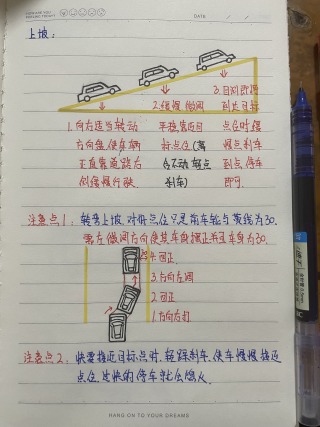 DATE
上坡:
1.向右适当转动
方向盘使车辆
正直靠道路右
侧缓慢行驶
2.缓慢微调
平稳靠近目
标点位(若
刹车)
3.目到即将
到达目标
点位时缓
慢点刹车
到点停车
即可.
注意点1: 转弯上坡.对好点只是前车轮与黄线为30.
需左微调方向使其车身摆正并且车身为30.
4.回正
3.方向左调
2.回正
1.方向右打
注意点2: 快要接近目标点时.轻踩刹车.使车慢慢接近
点位.过快的停车就会熄火.
HANG ON TO YOUR DREAMS